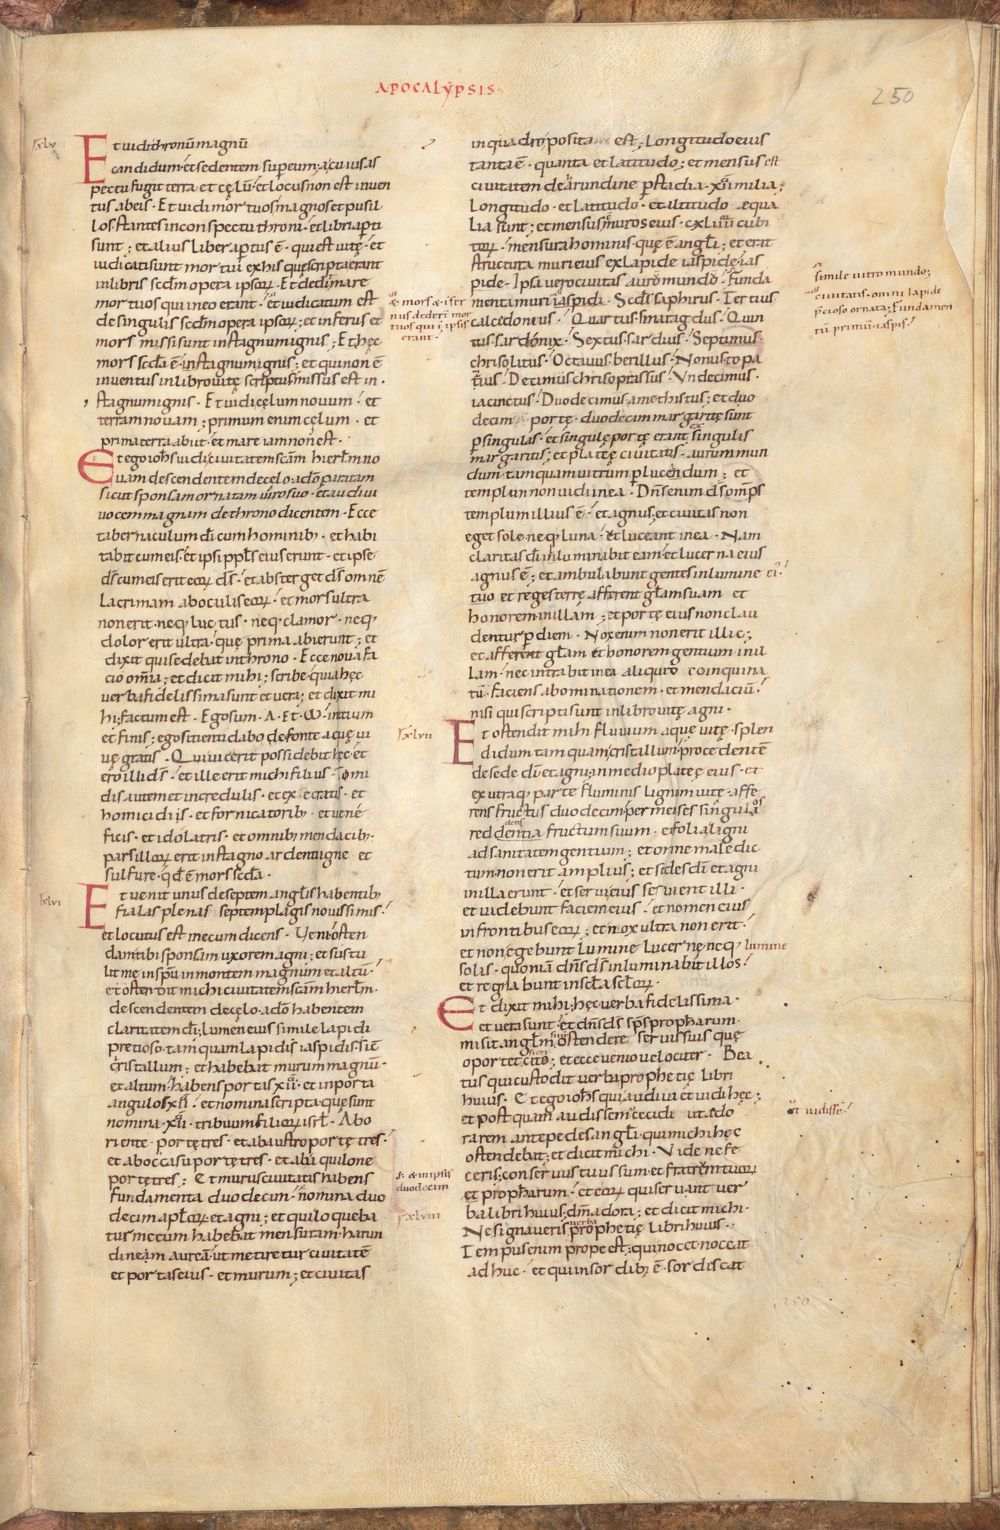 APOCALYPSIS·
250
Et vidi thronū magnū
candidum· et sedentem sup eum; a cuius as
pectu fugit terra et cęlū· et locus non est inven
tus ab eis· Et vidi mortuos magnos et pusil
los stantes in conspectu throni· et libri apti
sunt; et alius liber aptus ē· qui est vitę· et
iudicati sunt mortui ex his quę scripta erant
in libris scdm opera ipsoꝝ· Et dedit mare
mortuos qui in eo erant· et iudicatum est
de singulis scdm opera ipsoꝝ; et infer us et
mors missi sunt in stagnum ignis; Et hęc
mors scda ē· in stagnum ignis; et qui non ē
inventus in libro vitę scriptus· missus est in·
stagnum ignis· Et vidi cęlum novum· et
terram novam; primum enim cęlum· et
prima terra abiit· et mare iam non est·
Et ego iohs vidi civitatem scam hierlm no
vam descendentem de celo· a do paratam
sicut sponsam ornatam viro suo· et audivi
vocem magnam de throno dicentem· Ecce
tabernaculum di cum hominib; et habi
tabit cum eis· et ipsi ppls eius erunt· et ipse
ds cum eis erit eoꝝ ds· et absterget ds omnē
lacrimam ab oculis eoꝝ· et mors ultra
non erit· neq; luctus· neq; clamor· neq;
dolor erit ultra· quę prima abierunt; et
dixit qui sedebat in throno· Ecce nova fa
cio omia; et dicit mihi; scribe· quia hęc
verba fidelissima sunt et vera; et dixit mi
hi; factum est· Ego sum· Λ· Et· ω· initium
et finis; ego sitienti dabo de fonte aquę vi
vę gratis· Qui vicerit possidebit hęc· et
ero illi ds· et ille erit michi filius· Timi
dis autem et incredulis· et execratis· et
homicidiis· et fornicatorib; et vene
ficis· et idolatris· et omnib; mendacib;
pars illoꝝ erit in stagno ardenti igne et
sulfure· qd ē mors scda·
Et venit unus de septem angls habentib;
fialas plenas septem plagis novissimis·
et locutus est mecum dicens· Veni osten
dam tibi sponsam uxorem agni; et sustu
lit me in spu in montem magnum et altū·
et ostendit michi civitatem scam hierlm·
descendentem de celo· a do habentem
claritatem di; lumen eius simile lapidi
pretioso· tam quam lapidis iaspidis· sic
cristallum; et habebat murum magnū·
et altum· habens portas xii· et in porta
angulos xii· et nomina scripta· quę sunt
nomina· xii· tribuum filioꝝ isrl· Abo
riente· portę tres· et ab austro portę tres·
et ab occasu portę tres· et ab aquilone
portę tres; Et murus civitatis habens
fundamenta duodecim· nomina duo
decim aploꝝ· et agni; et qui loqueba
tur mecum habebat mensuram· harun
dineam auream· ut metiretur civitatē
et portas eius· et murum; et civitas
ę mors & ifer
nus dederṫ mor
tuos qui i ipsis
erant·
& in ipsis
duodecim
in quadro posita est; Longitudo eius
tanta ē· quanta et latitudo; et mensus est
civitatem de arundine p stadia· xii milia;
Longitudo· et latitudo· et altitudo ęqua
lia sunt; et mensus muros eius· cxliiii cubi
toꝝ· mensura hominis· quę ē angli; et erat
structura muri eius ex lapide iaspide· ias
pide· Ipsa vero civitas auro mundo· Funda
menta muri iaspidi· Scds saphirus· Tertius
calcedonius· Quartus· smaragdus· Quin
tus· sardonix· Sextus· sardius· Septimus·
chrisolitus· Octavus· berillus· Nonus· topa
zius· Decimus chrisoprassus· Undecimus·
iacinctus· Duodecimus· amethistus; et duo
decim portę· duodecim margaritę sunt
p singulas· et singulę portę erant· singulis
margaritis; et platę civitatis· aurum mun
dum· tamquam vitrum p lucendum; et
templum non vidi in ea· Dns enim ds omps
templum illius ē· et agnus; et civitas non
eget sole neq; luna· Ut luceant in ea· Nam
claritas di inluminabit eam· et lucerna eius
agnus ē; et ambulabunt gentes in lumine ei·
tuo et reges terrę afferent glam suam et
honorem in illam; et portę eius non clau
dentur p diem· Nox enim non erit illic;
et afferent glam et honorem gentium in il
lam· nec intrabit in ea aliquid coinquina
tū· faciens abominationem· et mendaciū·
nisi qui scripti sunt in libro vitę agni·
Et ostendit mihi fluvium aquę vitę· splen
didum tam quam cristallum· procedentē
de sede di et agni· in medio plateę eius· et
ex utraq; parte fluminis lignum vitę· affe
rens fructus duodecim per menses singulos
reddentia fructum suum· et folia ligni
ad sanitatem gentium; et omne maledic
tum non erit amplius; et sedes di et agni
in illa erunt· et servi eius servient illi·
et videbunt faciem eius· et nomen eius
in frontibus eoꝝ; et nox ultra non erit·
et non egebunt lumine lucernę neq; lumine
solis· quoniā dns ds inluminabit illos·
et regnabunt in scla scloꝝ·
Et dixit mihi; hęc verba fidelissima·
et vera sunt· et dns ds sps propharum·
misit anglm suū ostendere servis suis quę
oportet cito; et ecce venio velociter· Bea
tus qui custodit verba prophetię libri
huius· Et ego iohs qui audivi et vidi hęc;
et post quam audissem cecidi ut ado
rarem ante pedes angli· qui michi hęc
ostendebat; et dicit michi· Vide ne fe
ceris; conservus tuus sum· et fratrum tuoꝝ
et propharum· et eoꝝ qui servant ver
ba libri huius; dm adora; et dicit michi·
Ne signaveris verba prophetię libri huius·
Tempus enim prope est; qui nocet noceat
adhuc· et qui in sordib; ē· sordiscat
simile vitro mundo;
civitatis· omni lapide
pcioso ornata; fundamen
tū primū· iaspis·
et vidisse·